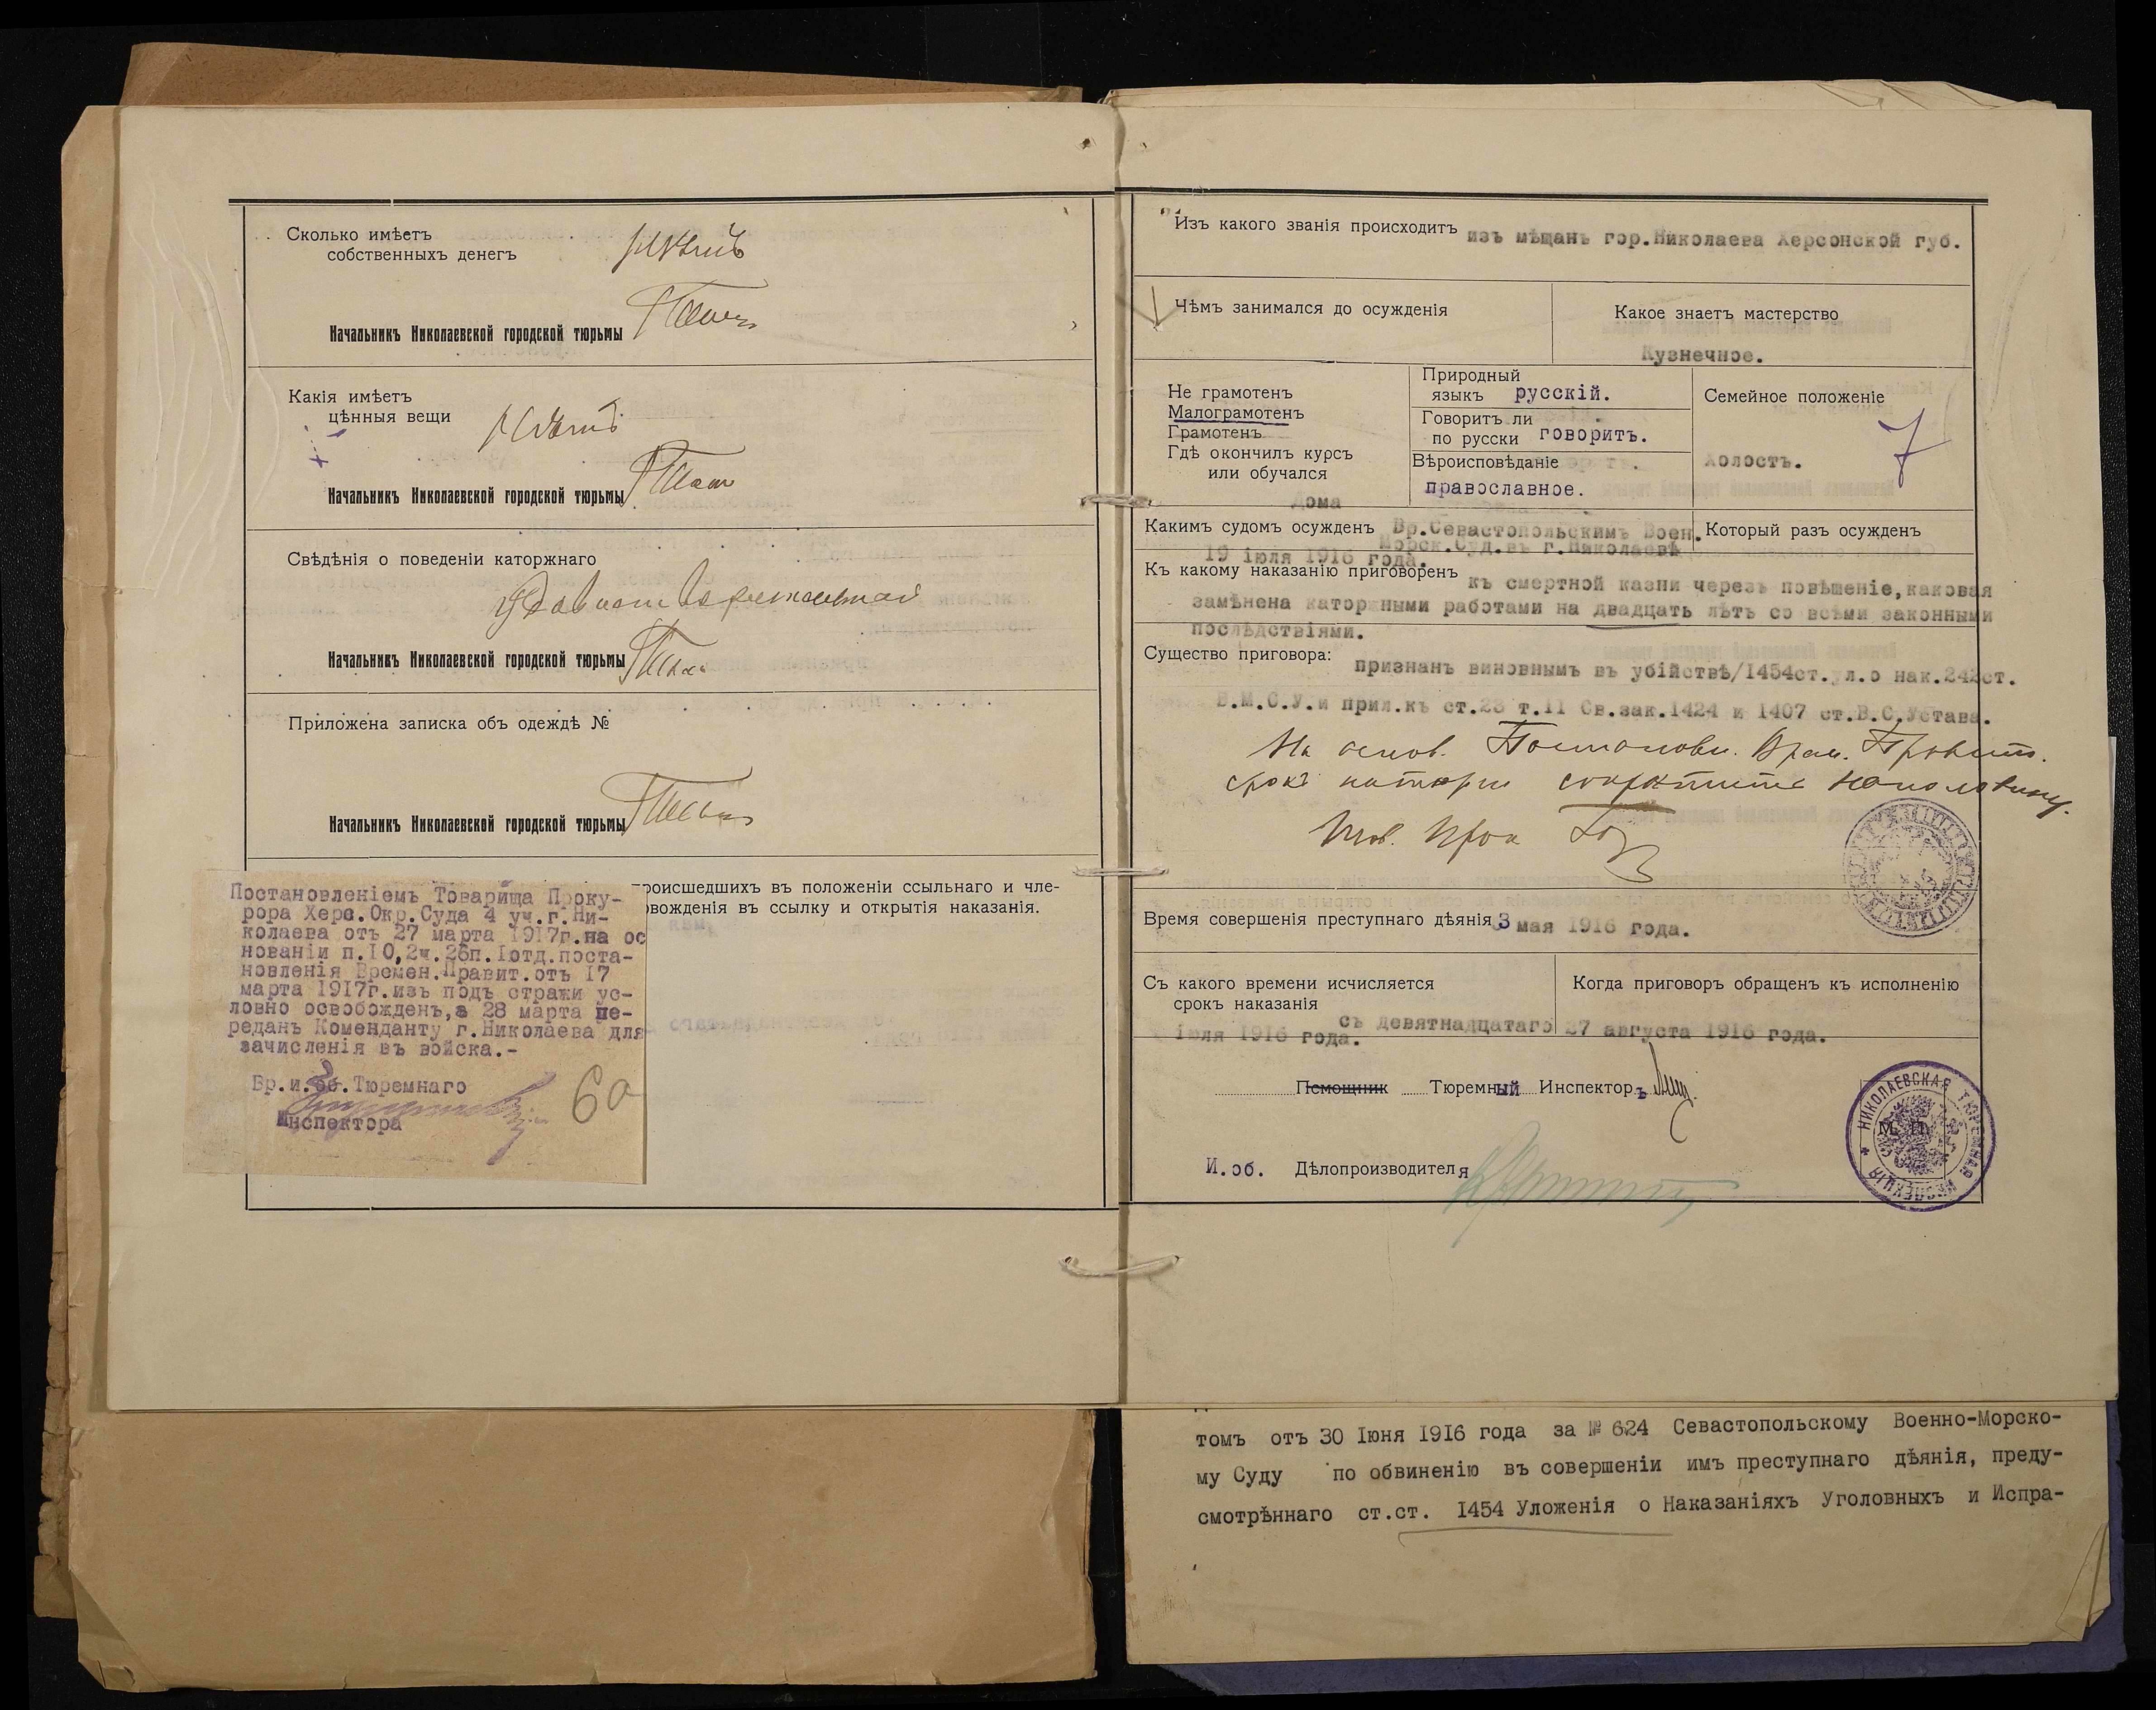 Сколько имѣетъ
собственныхъ денегъ
Начальникъ Николаевской городской тюрьмы
Какія имѣетъ
цѣнныя вещи
Начальникъ Николаевской городской тюрьмы
Свѣдѣнія о поведеніи каторжнаго
Начальникъ Николаевской городской тюрьмы
Приложена записка объ одеждѣ №
Начальникъ Николаевской городской тюрьмы
происшедшихъ въ положеніи ссыльнаго и чле-
овожденія въ ссылку и открытія наказанія.
Постановленіемъ Товарища Проку-
рора Херс.Окр.Суда 4 уч.г.Ни-
колаева отъ 27 марта 1917г.на ос
нованіи п.10,2ч.26п.1отд.поста-
новленія Времен.Правит.отъ 17
марта 1917г.изъ подъ стражи ус-
ловно освобожденъ,а 28 марта пе-
реданъ Коменданту г.Николаева для
зачисленія въ войска.-
Вр.и.об.Тюремнаго
Инспектора
6а
Изъ какого званія происходитъ изъ мѣщанъ гор.Николаева Херсонской губ.
Чѣмъ занимался до осужденія
Какое знаетъ мастерство
Кузнечное.
Не грамотенъ
Малограмотенъ
Грамотенъ
Гдѣ окончилъ курсъ
или обучался
Дома
Природный
языкъ русскій.
Говоритъ ли
по русски говоритъ.
Вѣроисповѣданіе
православное.
Семейное положеніе
7
Холостъ.
Какимъ судомъ осужденъ Вр.Севастопольскимъ Воен.
Морск.Суд.въ г.Николаевѣ
19 іюля 1916 года.
Который разъ осужденъ
Къ какому наказанію приговоренъ къ смертной казни черезъ повѣшеніе,каковая
замѣнена каторжными работами на двадцать лѣтъ со всѣми законными
послѣдствіями.
Существо приговора: признанъ виновнымъ въ убійствѣ/1454ст.ул.о нак.242ст.
В.М.С.У.и прил.къ ст.23 т.11 Св.зак.1424 и 1407 ст.В.С.Устава.
На основ. Постановл. Врем. Правит.
срокъ каторги сокращенъ наполовину.
Тов. Прок
Время совершенія преступнаго дѣянія 3 мая 1916 года.
Съ какого времени исчисляется
срокъ наказанія
съ девятнадцатаго
іюля 1916 года.
Когда приговоръ обращенъ къ исполненію
27 августа 1916 года.
Помощник Тюремный Инспекторъ
И.об. Дѣлопроизводителя
НИКОЛАЕВСКАЯ ТЮРЕМНАЯ ИНСПЕКЦІЯ
М. П.
томъ отъ 30 Іюня 1916 года за № 624 Севастопольскому Военно-Морско-
му Суду по обвиненію въ совершеніи имъ преступнаго дѣянія, преду-
смотрѣннаго ст.ст. 1454 Уложенія о Наказаніяхъ Уголовныхъ и Испра-